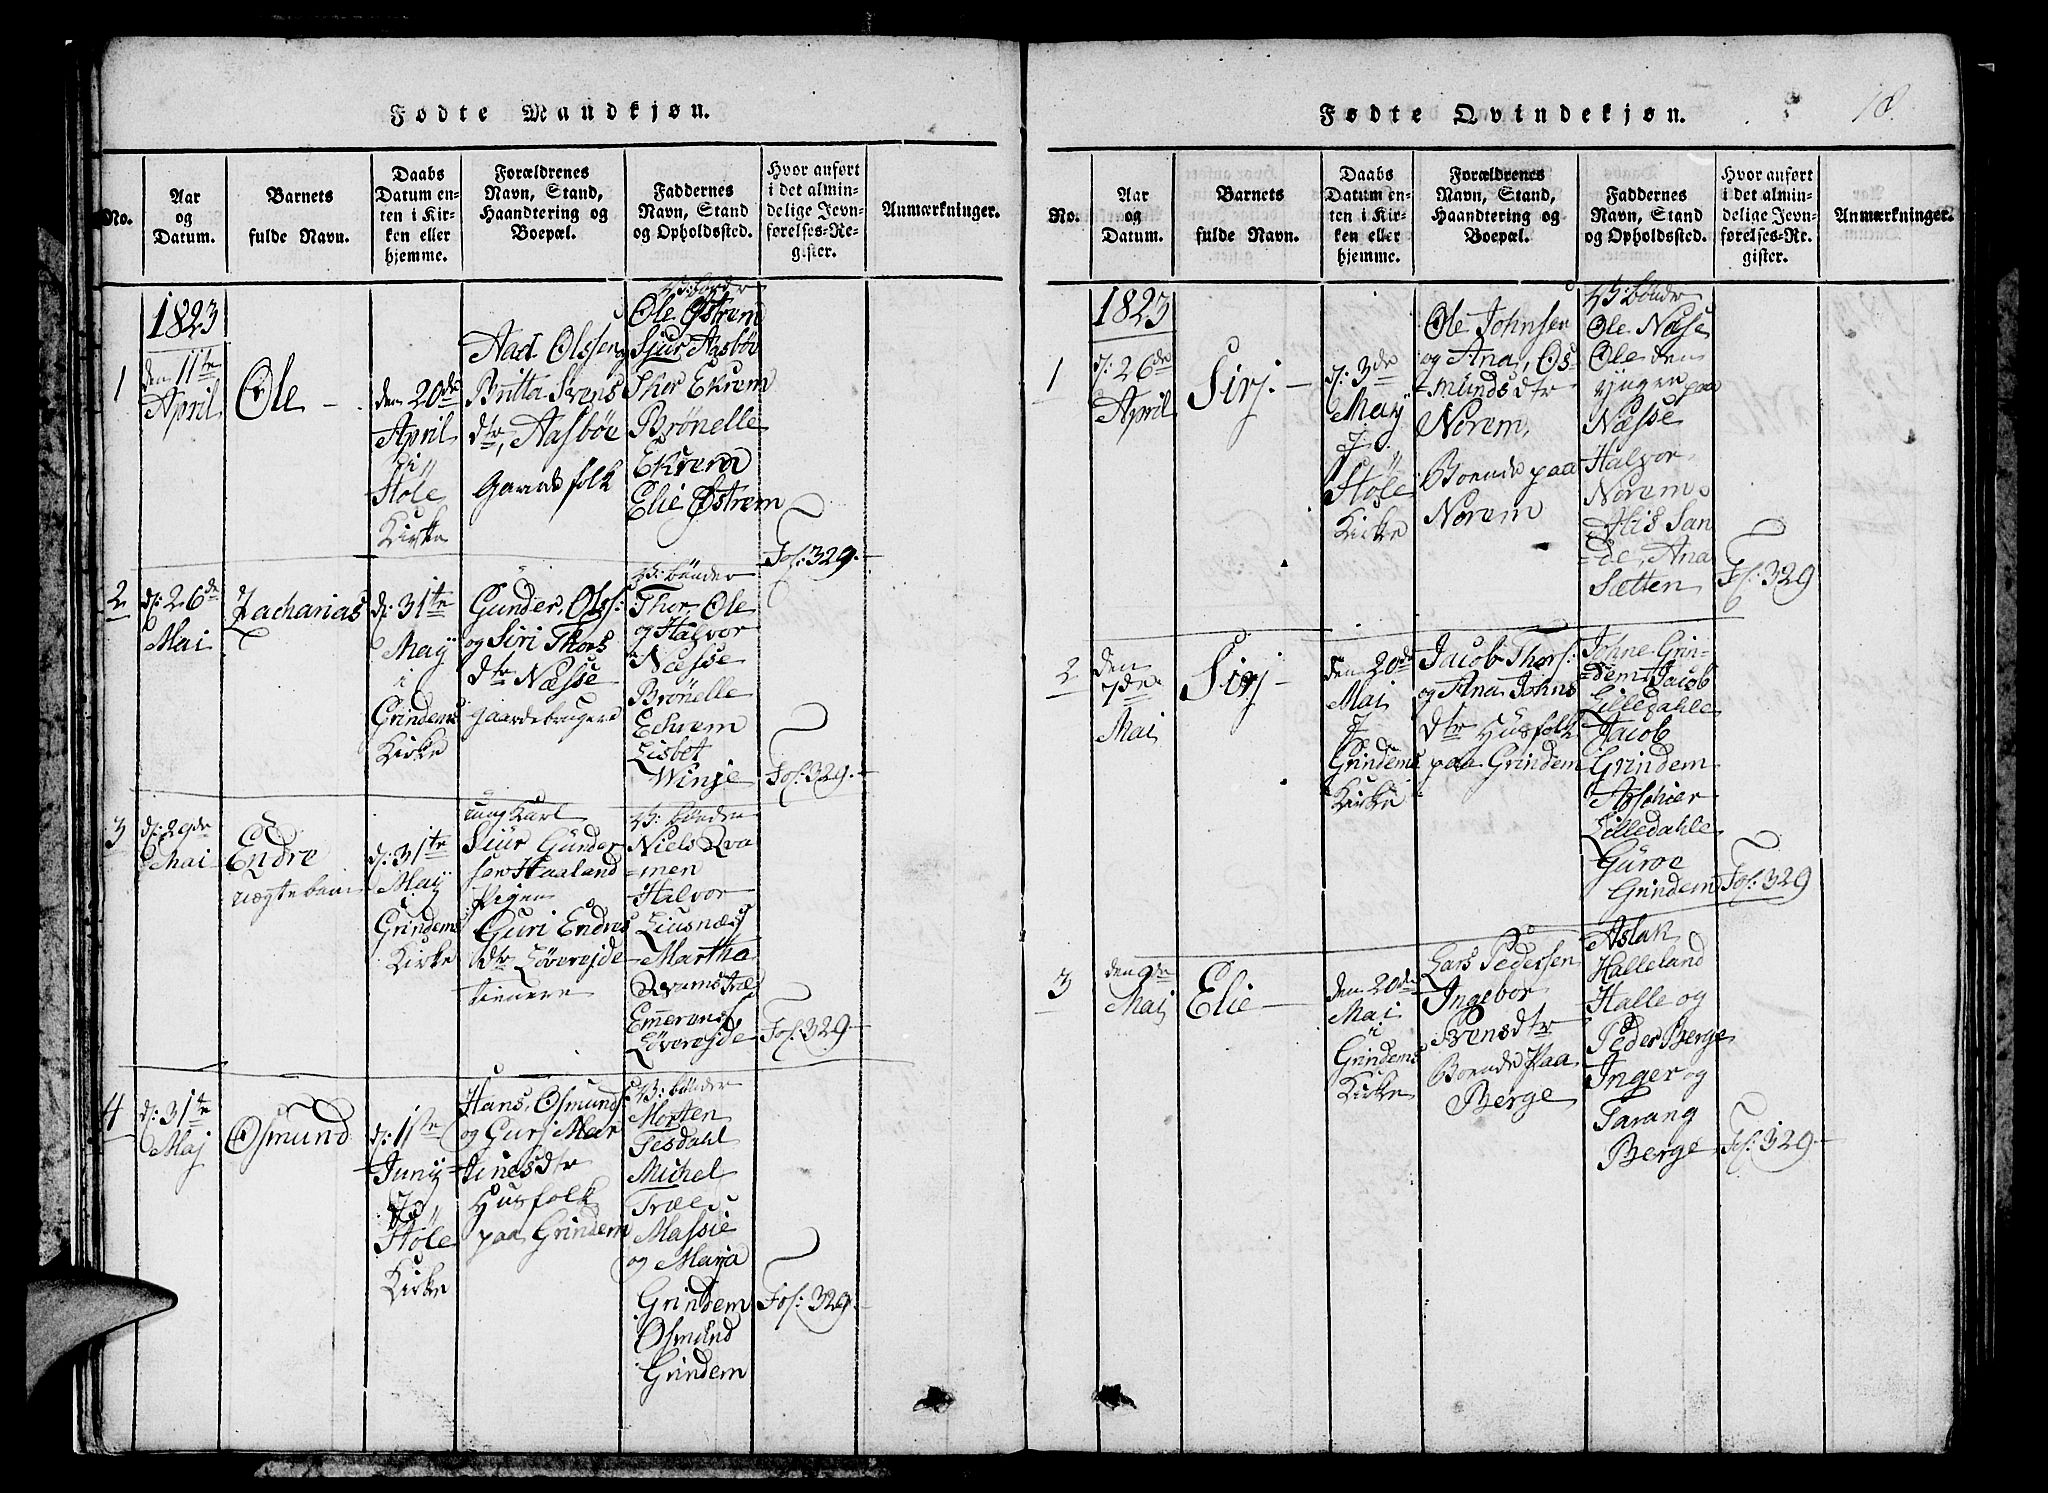 Fødte Mandkjøn.
No.
Aar
og
Datum.
Barnets
fulde Navn.
Daabs
Datum en-
ten i Kir-
ken eller
hjemme.
Forældrenes
Navn, Stand,
Haandtering og
Boepæl.
Faddernes
Navn, Stand
og Opholdssted.
Hvor anført
i det almin-
delige Jevn-
førelses-Re-
gister.
Anmærkninger.
1823
1
den 11te
April
Ole
den 20de
April
i
Höle
Kirke
Aad Olssen
Britta Svens
dtr, Aasböe
Gaardsfolk
Ole Østrem
Sjur Aasbö
Thor Ekrem
Brönelle
Ekrem
Elie Østrem
Fol: 329.
2
d: 26de
Mai
Zacharias
d: 31te
May
i
Grindems
Kirke
Gunder, Ols:
og Siri Thors
dtr Næsse
gaardebrugere
W: bönder
Thor, Ole
og Halvor
Næsse
Brönelle
Eckrem
Lisbet
Winje
Fol: 329.
3
d: 29de
Mai
Endre
uægtebarn
d: 31te
May
i
Grindems
Kirke
ung Karl
Siur Gunder
sen Haaland
Pigen
Guri Endres
dtr Löverejde
tienere
W: bönder
Niels Qva
=men
Halvor
Liusnæs
Martha
Qvamstræ
Löverejde
Fol: 329.
4
d: 31te
Maj
Osmund
d: 1ste
Junij
J
Höle
Kirke
Hans, Osmunds:
og Gurj Mar
tinesdtr
Husfolk
paa Grindem
W: bönder
Morten
Tesdahl
Michel
Træe
Massie
og Maria
Grindem
Osmund
Grindem
Fol: 329.
Fødte Qvindekjøn.
18.
No.
Aar
og
Datum.
Barnets
fulde Navn.
Daabs
Datum en-
ten i Kir-
ken eller
hjemme.
Forældrenes
Navn, Stand,
Haandtering og
Boepæl.
Faddernes
Navn, Stand
og Opholdssted.
Hvor anført
i det almin-
delige Jevn-
førelses-Re-
gister.
Anmærkninger.
1823
1
d: 26de
April
Sirj.
d: 3de
May
J
Höle
Kirke
Ole Johnsen
og Ana, Os-
=mundsdtr
Norem,
Boende paa
Norem
W: bönder
Ole Næse
Ole den
yngre paa
Næsse
Halvor
Norem.
Alis San
=de, Ana
Sætten
Fol: 329
2
den
7de
Mai
Sirj
den 20de
Mai
J
Grindems
Kirke
Jacob Thors:
og Ana Johns
dtr Husfolk
paa Grindem
Johne Grin-
=dem Jacob
Lilledahle
Jacob
Grindem
Lilledahle
Guroe
Grindem
Fol: 329
3
den 9de
Mai
Elie
den 20de
Mai
i
Grindems
Kirke
Lars Pedersen
Ingebor
Svensdtr
Boende Paa
Berge
Aslak
Halleland
Halle og
Peder Berge
Inger og
Tarang
Berge
Fol: 329.